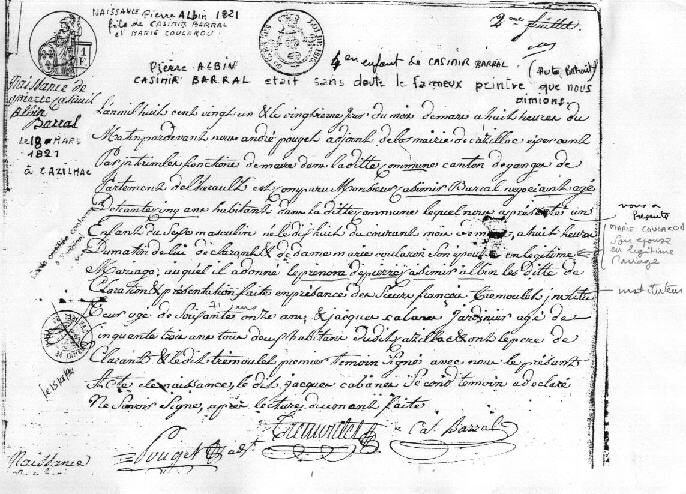 NAISSANCE Pierre ALBIN 1821
fils de CASIMIR BARRAL
et MARIE COULAROU
2me feuillet.
4 en enfant de CASIMIR BARRAL
Pierre ALBIN
CASIMIR BARRAL etait sans doute le fameux peintre (Auto Portrait) que nous
aimions.
Naissance de
pierre Casimir
Albin
Barral
le 18 MARS
1821
à CAZILHAC
L'an mil huit cent vingt un & le vingtieme jour du mois de mars a huit heures du
Matin pardevant nous andré pouget adjoint de la mairie de Cazillac exerceant
Par interim les fonctions de maire dans la ditte Commune canton de ganges de
partement de l'herault est comparu Monsieur Casimir Barral negociant agé
De trante cinq ans habitant dans la ditte Commune lequel nous a présenté un
Enfant du Sexe masculin né le dix huit du courant mois a huit heures
Du matin de lui déclarant & de dame marie coularou son épouse en legitime
Mariage, auquel il a donné le prenom de pierre casimir albin les ditte de
Claration & présentation faite en présance des Sieurs françois Tremoulet, institu
Teur agé de Soixante onze ans, & jacques cabanes jardinier agé de
21 ans
Cinquante trois ans tous deux habitans du dit Cazillac & ont le pere de
Clarant & le dit tremoulet premier temoin Signé avec nous le présant
Acte de naissance, le dit jacques cabanes Second temoin a declaré
Ne Savoir Signer, après lecture dument faite
nous a
presenté
MARIE COULAROU
Son épouse
en legitime
mariage
instituteur
Pouget adjt
Tremoulet
Cas. Barral
Naissance